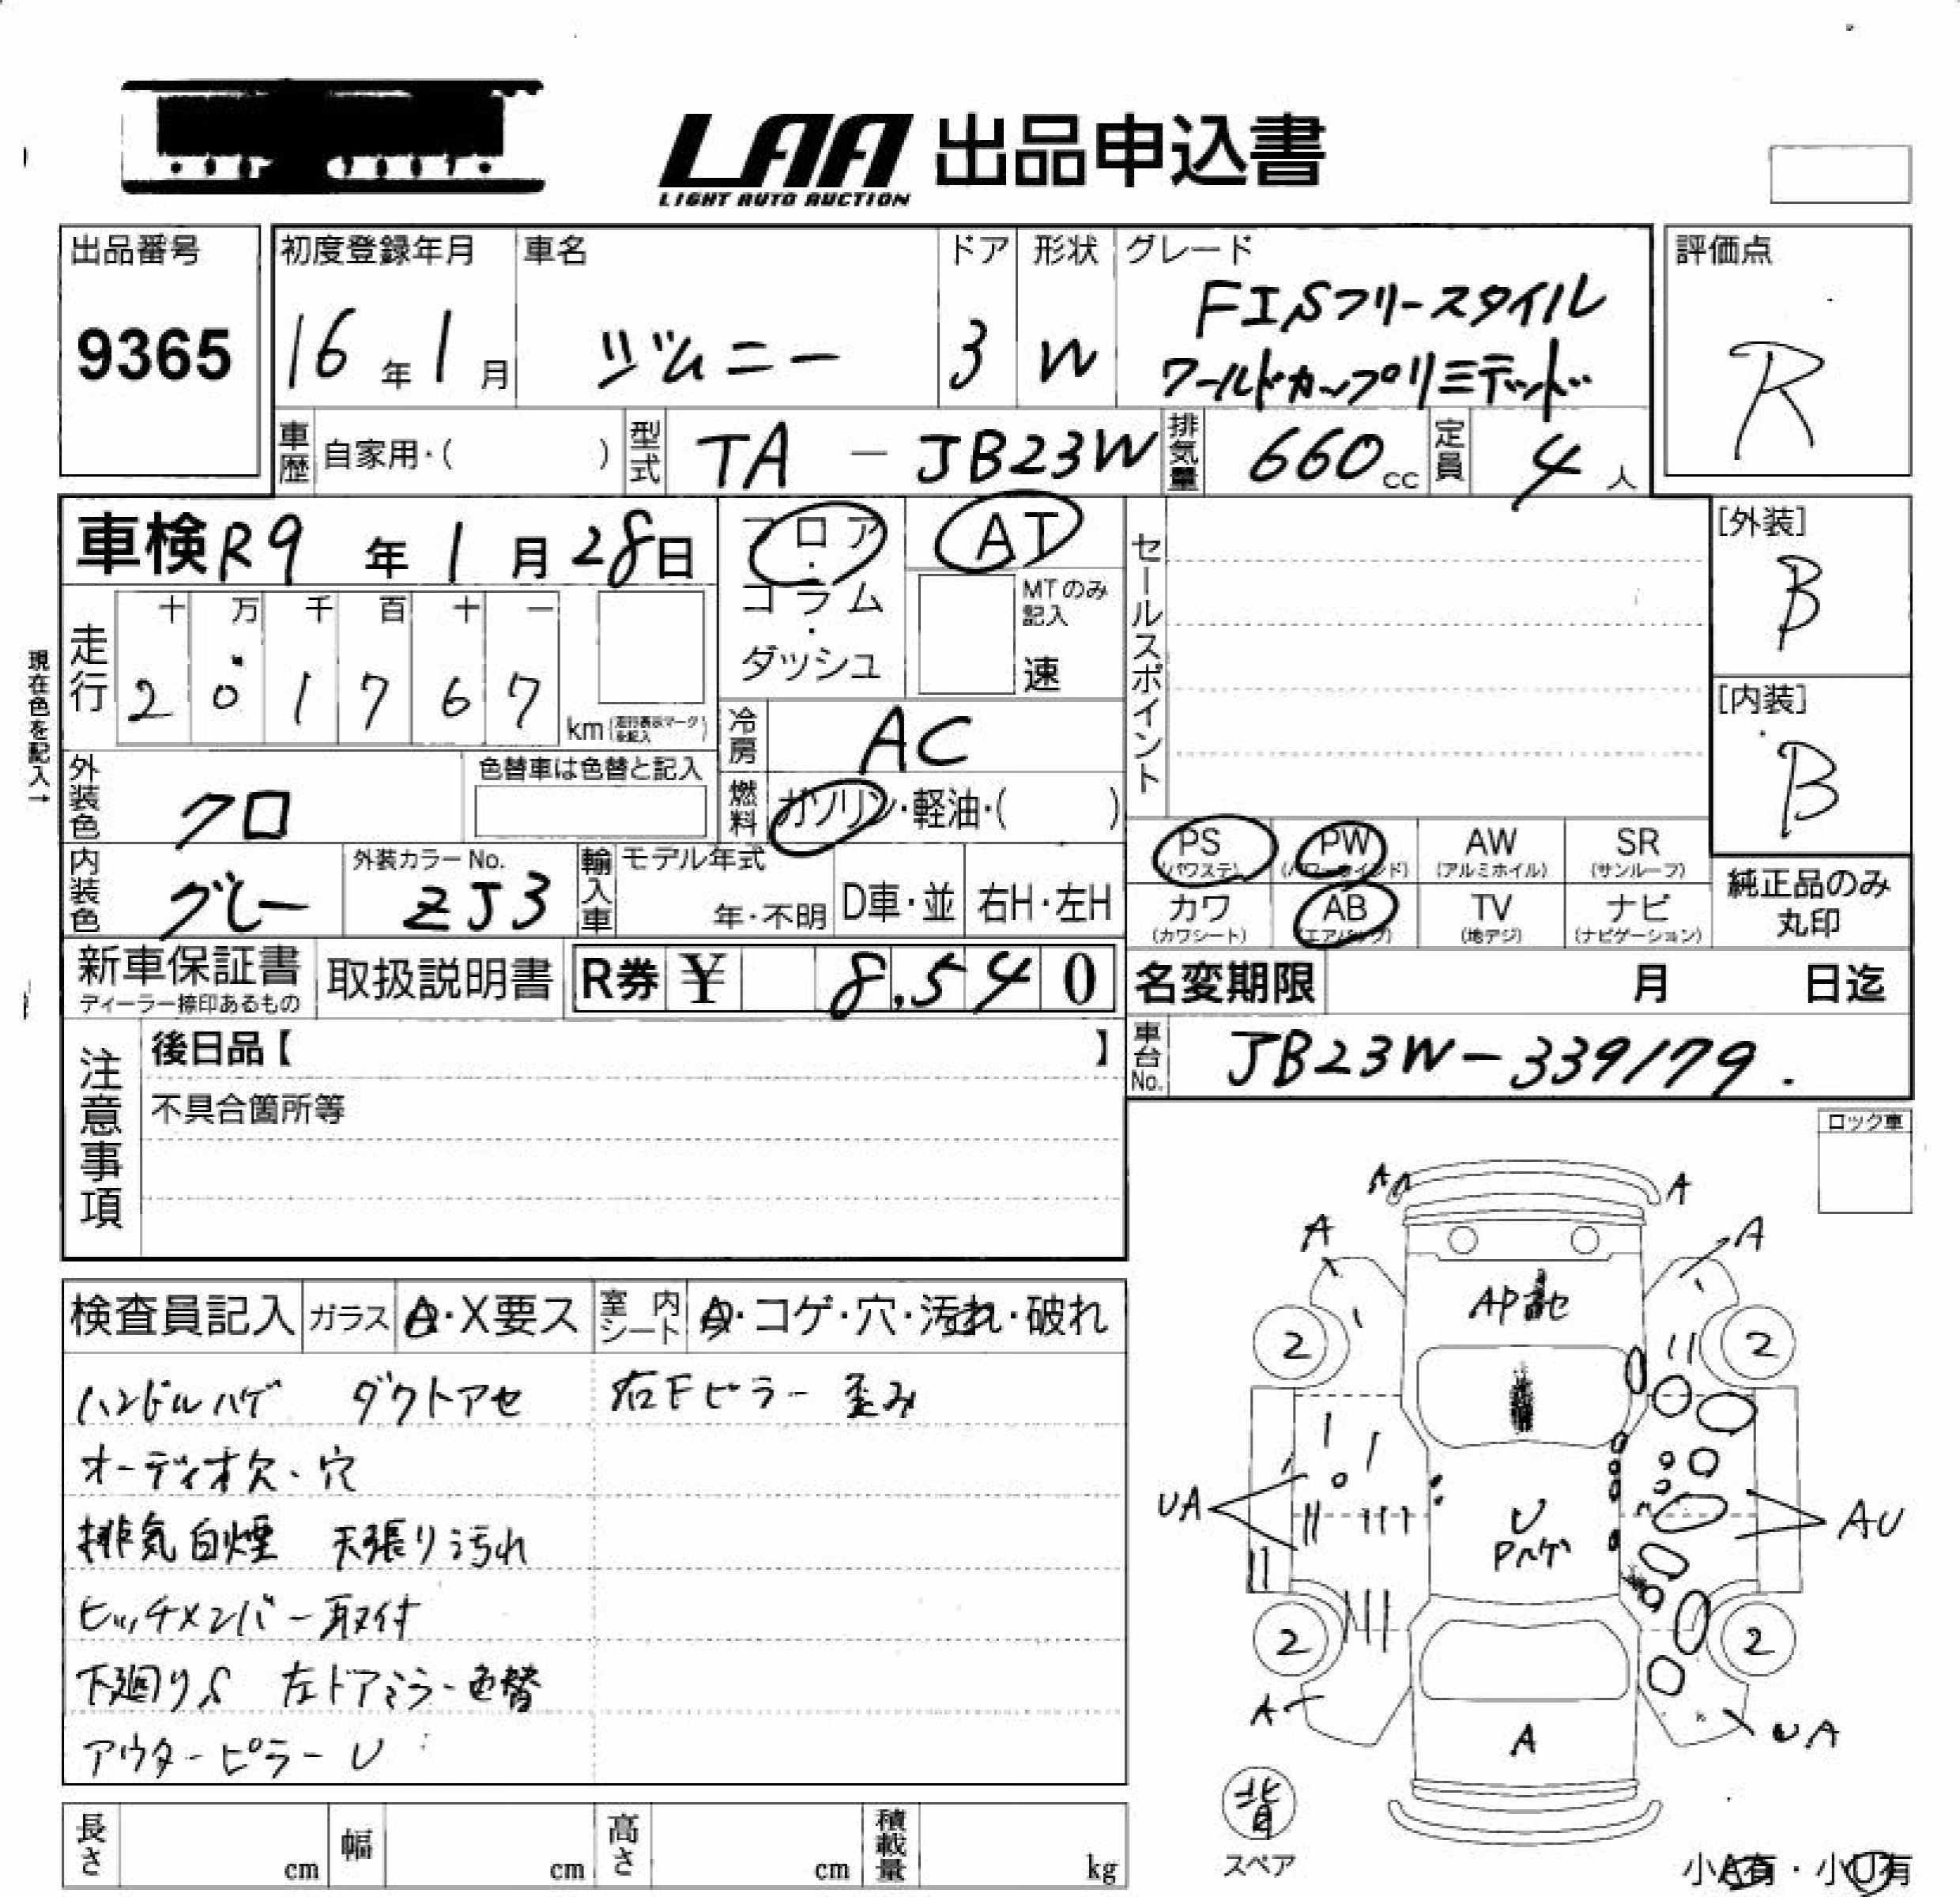 LAA 出品申込書
LIGHT AUTO AUCTION
出品番号
9365
初度登録年月
16年1月
車名
ジムニー
ドア
3
形状
W
グレード
FISフリースタイル
ワールドカップリミテッド
評価点
R
車歴 自家用・( )
型式 TA - JB23W
排気量 660cc
定員 4人
車検 R9年1月28日
フロア・コラム・ダッシュ
AT
MTのみ記入
速
セールスポイント
[外装]
B
[内装]
B
現在色を記入→
走行
十 万 千 百 十 一
2 0 1 7 6 7
km(走行表示マークを記入)
冷房 AC
外装色 クロ
色替車は色替と記入
燃料 ガソリン・軽油・( )
内装色 グレー
外装カラーNo.
ZJ3
輸入車
モデル年式
年・不明
D車・並
右H・左H
PS (パワステ)
PW (パワーウインド)
AW (アルミホイル)
SR (サンルーフ)
カワ (カワシート)
AB (エアバック)
TV (地デジ)
ナビ (ナビゲーション)
純正品のみ
丸印
新車保証書
ディーラー捺印あるもの
取扱説明書
R券 ¥ 8,540
名変期限 月 日迄
車台No. JB23W-339179.
注意事項
後日品【 】
不具合箇所等
ロック車
検査員記入
ガラス A・X要ス
室内シート A・コゲ・穴・汚れ・破れ
ハンドルハゲ ダクトアセ 右Fピラー 歪み
オーディオ欠・穴
排気白煙 天張り汚れ
ヒッチメンバー取付
下廻りS 左ドアミラー色替
アウターピラーU
A A
A A
AP
2 2
UA AU
U
Pハゲ
2 2
A UA
A
背
スペア
小A有・小U有
長さ cm
幅 cm
高さ cm
積載量 kg